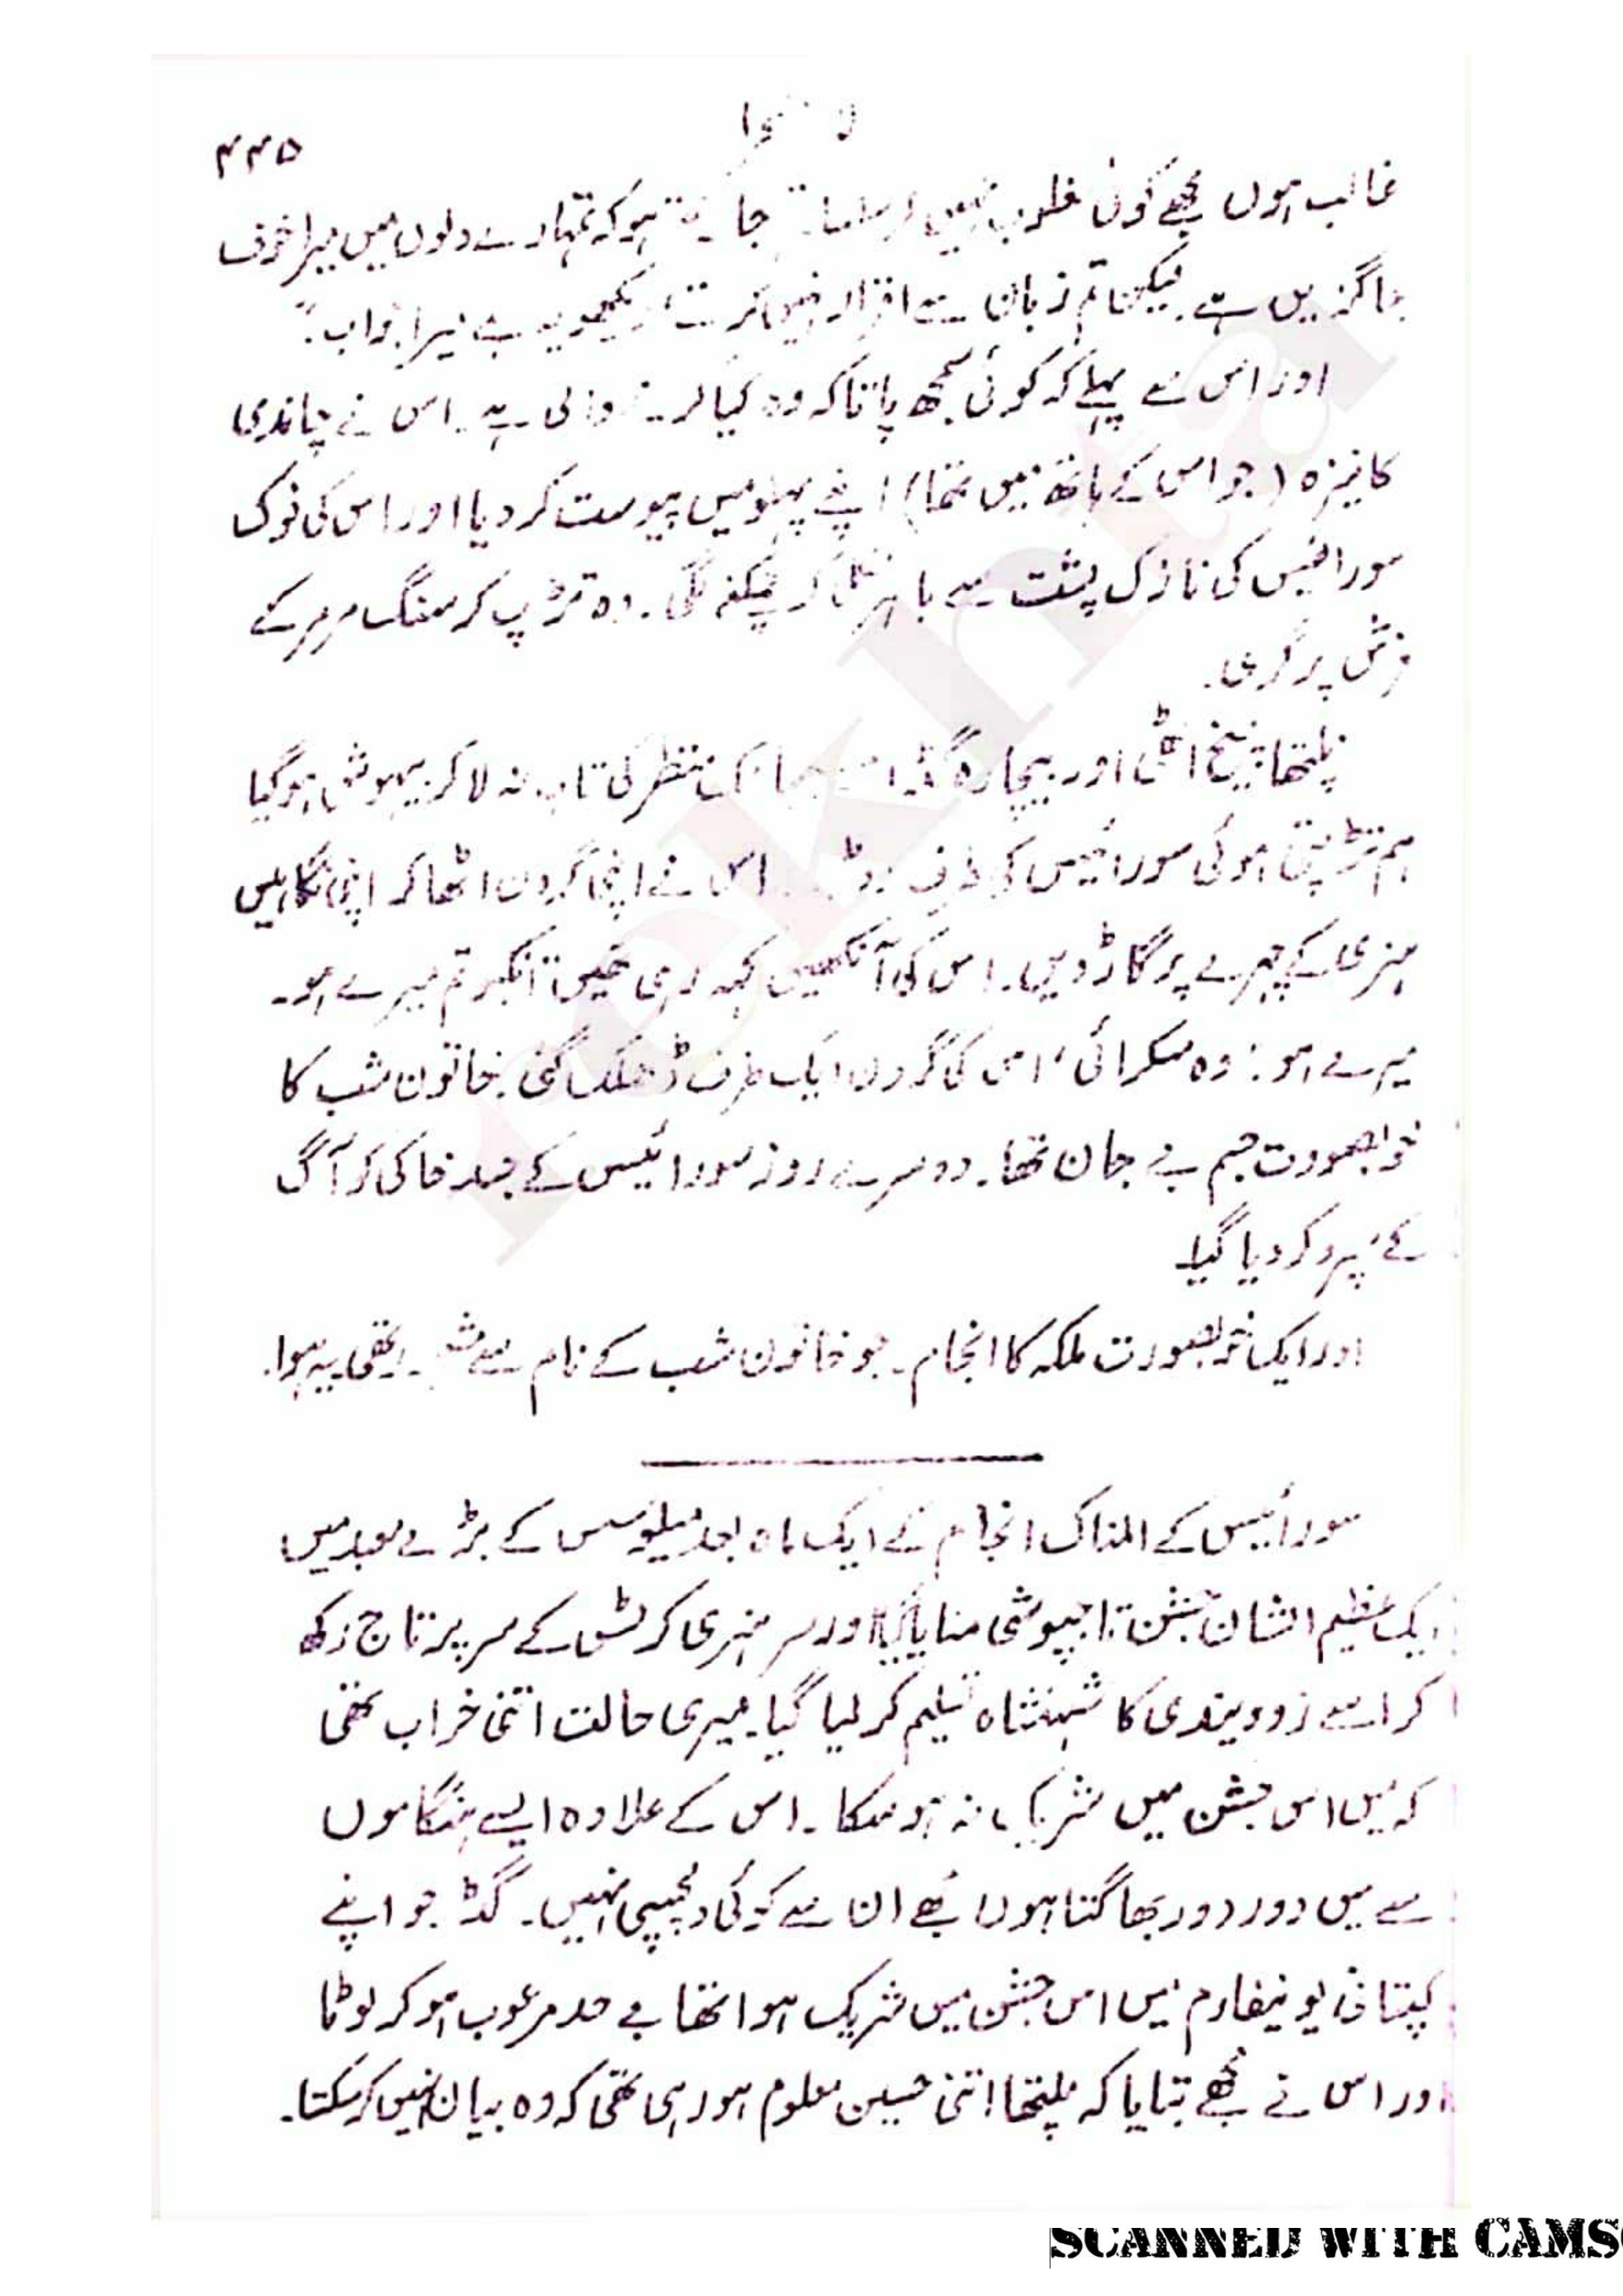 ۴۴۵
غالب ہوں مجھے کوئی مغلوب نہیں کر سکتا۔ جانتے ہو کہ تمہارے دلوں میں میرا خوف
جاگزیں ہے۔ لیکن تم زبان سے اقرار نہیں کرتے، دیکھو یہ ہے میرا جواب۔"
اور اس سے پہلے کہ کوئی سمجھ پاتا کہ وہ کیا کرنے والی ہے۔ اس نے چاندی
کا نیزہ (جو اس کے ہاتھ میں تھا) اپنے پہلو میں پیوست کر دیا اور اس کی نوک
سورائیس کی نازک پشت سے باہر نکل کر چمکنے لگی۔ وہ تڑپ کر سنگ مرمر کے
فرش پر گری۔
نلپتھا چیخ اٹھی اور بیچارہ گڈ اس منظر کی تاب نہ لا کر بیہوش ہو گیا
ہم تڑپتی ہوئی سورائیس کی طرف دوڑے۔ اس نے اپنی گردن اٹھا کر اپنی نگاہیں
ہنری کے چہرے پر گاڑ دیں۔ اس کی آنکھیں کہہ رہی تھیں "انکبو تم میرے ہو۔
میرے ہو: وہ مسکرائی، اس کی گردن ایک طرف ڈھلک گئی۔ خاتون شب کا
خوبصورت جسم بے جان تھا۔ دوسرے روز سورائیس کے جسد خاکی کو آگ
کے سپرد کر دیا گیا۔
اور ایک خوبصورت ملکہ کا انجام۔ جو خاتون شب کے نام سے مشہور تھی یہ ہوا۔
سورائیس کے المناک انجام کے ایک ماہ بعد میلوسس کے بڑے معبد میں
ایک عظیم الشان جشن تاجپوشی منایا گیا اور سر ہنری کرٹس کے سر پر تاج رکھ
کر اسے زوویندی کا شہنشاہ تسلیم کر لیا گیا۔ میری حالت اتنی خراب تھی
کہ میں اس جشن میں شریک نہ ہو سکا۔ اس کے علاوہ ایسے ہنگاموں
سے میں دور دور بھاگتا ہوں مجھے ان سے کوئی دلچسپی نہیں۔ گڈ جو اپنے
کپتانی یونیفارم میں اس جشن میں شریک ہوا تھا بے حد مرعوب ہو کر لوٹا
اور اس نے مجھے بتایا کہ نلپتھا اتنی حسین معلوم ہو رہی تھی کہ وہ بیان نہیں کر سکتا۔
rekhta
SCANNED WITH CAMS